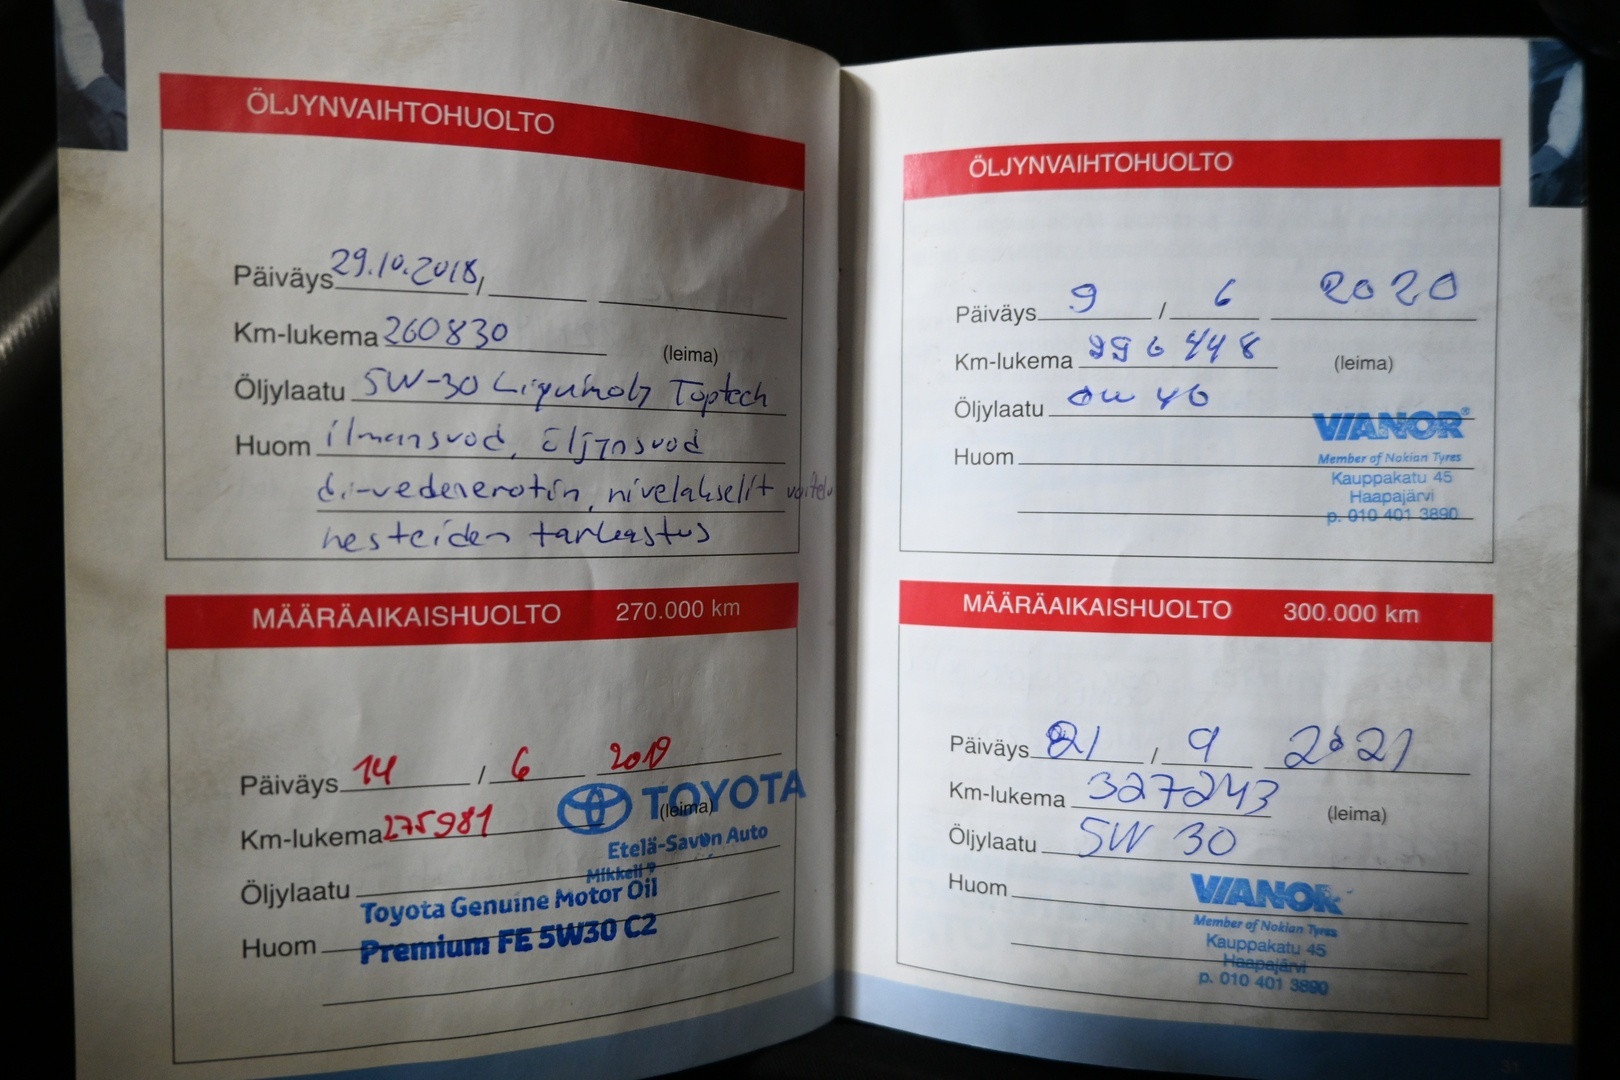 ÖLJYNVAIHTOHUOLTO
Päiväys 29.10.2018, 
Km-lukema 260830
(leima)
Öljylaatu 5W-30 Liquimoly Toptech
Huom ilmansuod, öljynsuod
di-vedenerotin, nivelakselit voitelu
nesteiden tarkastus
MÄÄRÄAIKAISHUOLTO 270.000 km
Päiväys 14 / 6 2019
Km-lukema 275981
(leima)
TOYOTA
Etelä-Savon Auto
Mikkeli
Öljylaatu
Toyota Genuine Motor Oil
Huom
Premium FE 5W30 C2
ÖLJYNVAIHTOHUOLTO
Päiväys 9 / 6 2020
Km-lukema 296448 (leima)
Öljylaatu 0w 40
VIANOR®
Member of Nokian Tyres
Huom
Kauppakatu 45
Haapajärvi
p. 010 401 3890
MÄÄRÄAIKAISHUOLTO 300.000 km
Päiväys 21 / 9 2021
Km-lukema 327243 (leima)
Öljylaatu 5W 30
Huom
VIANOR
Member of Nokian Tyres
Kauppakatu 45
Haapajärvi
p. 010 401 3890
31